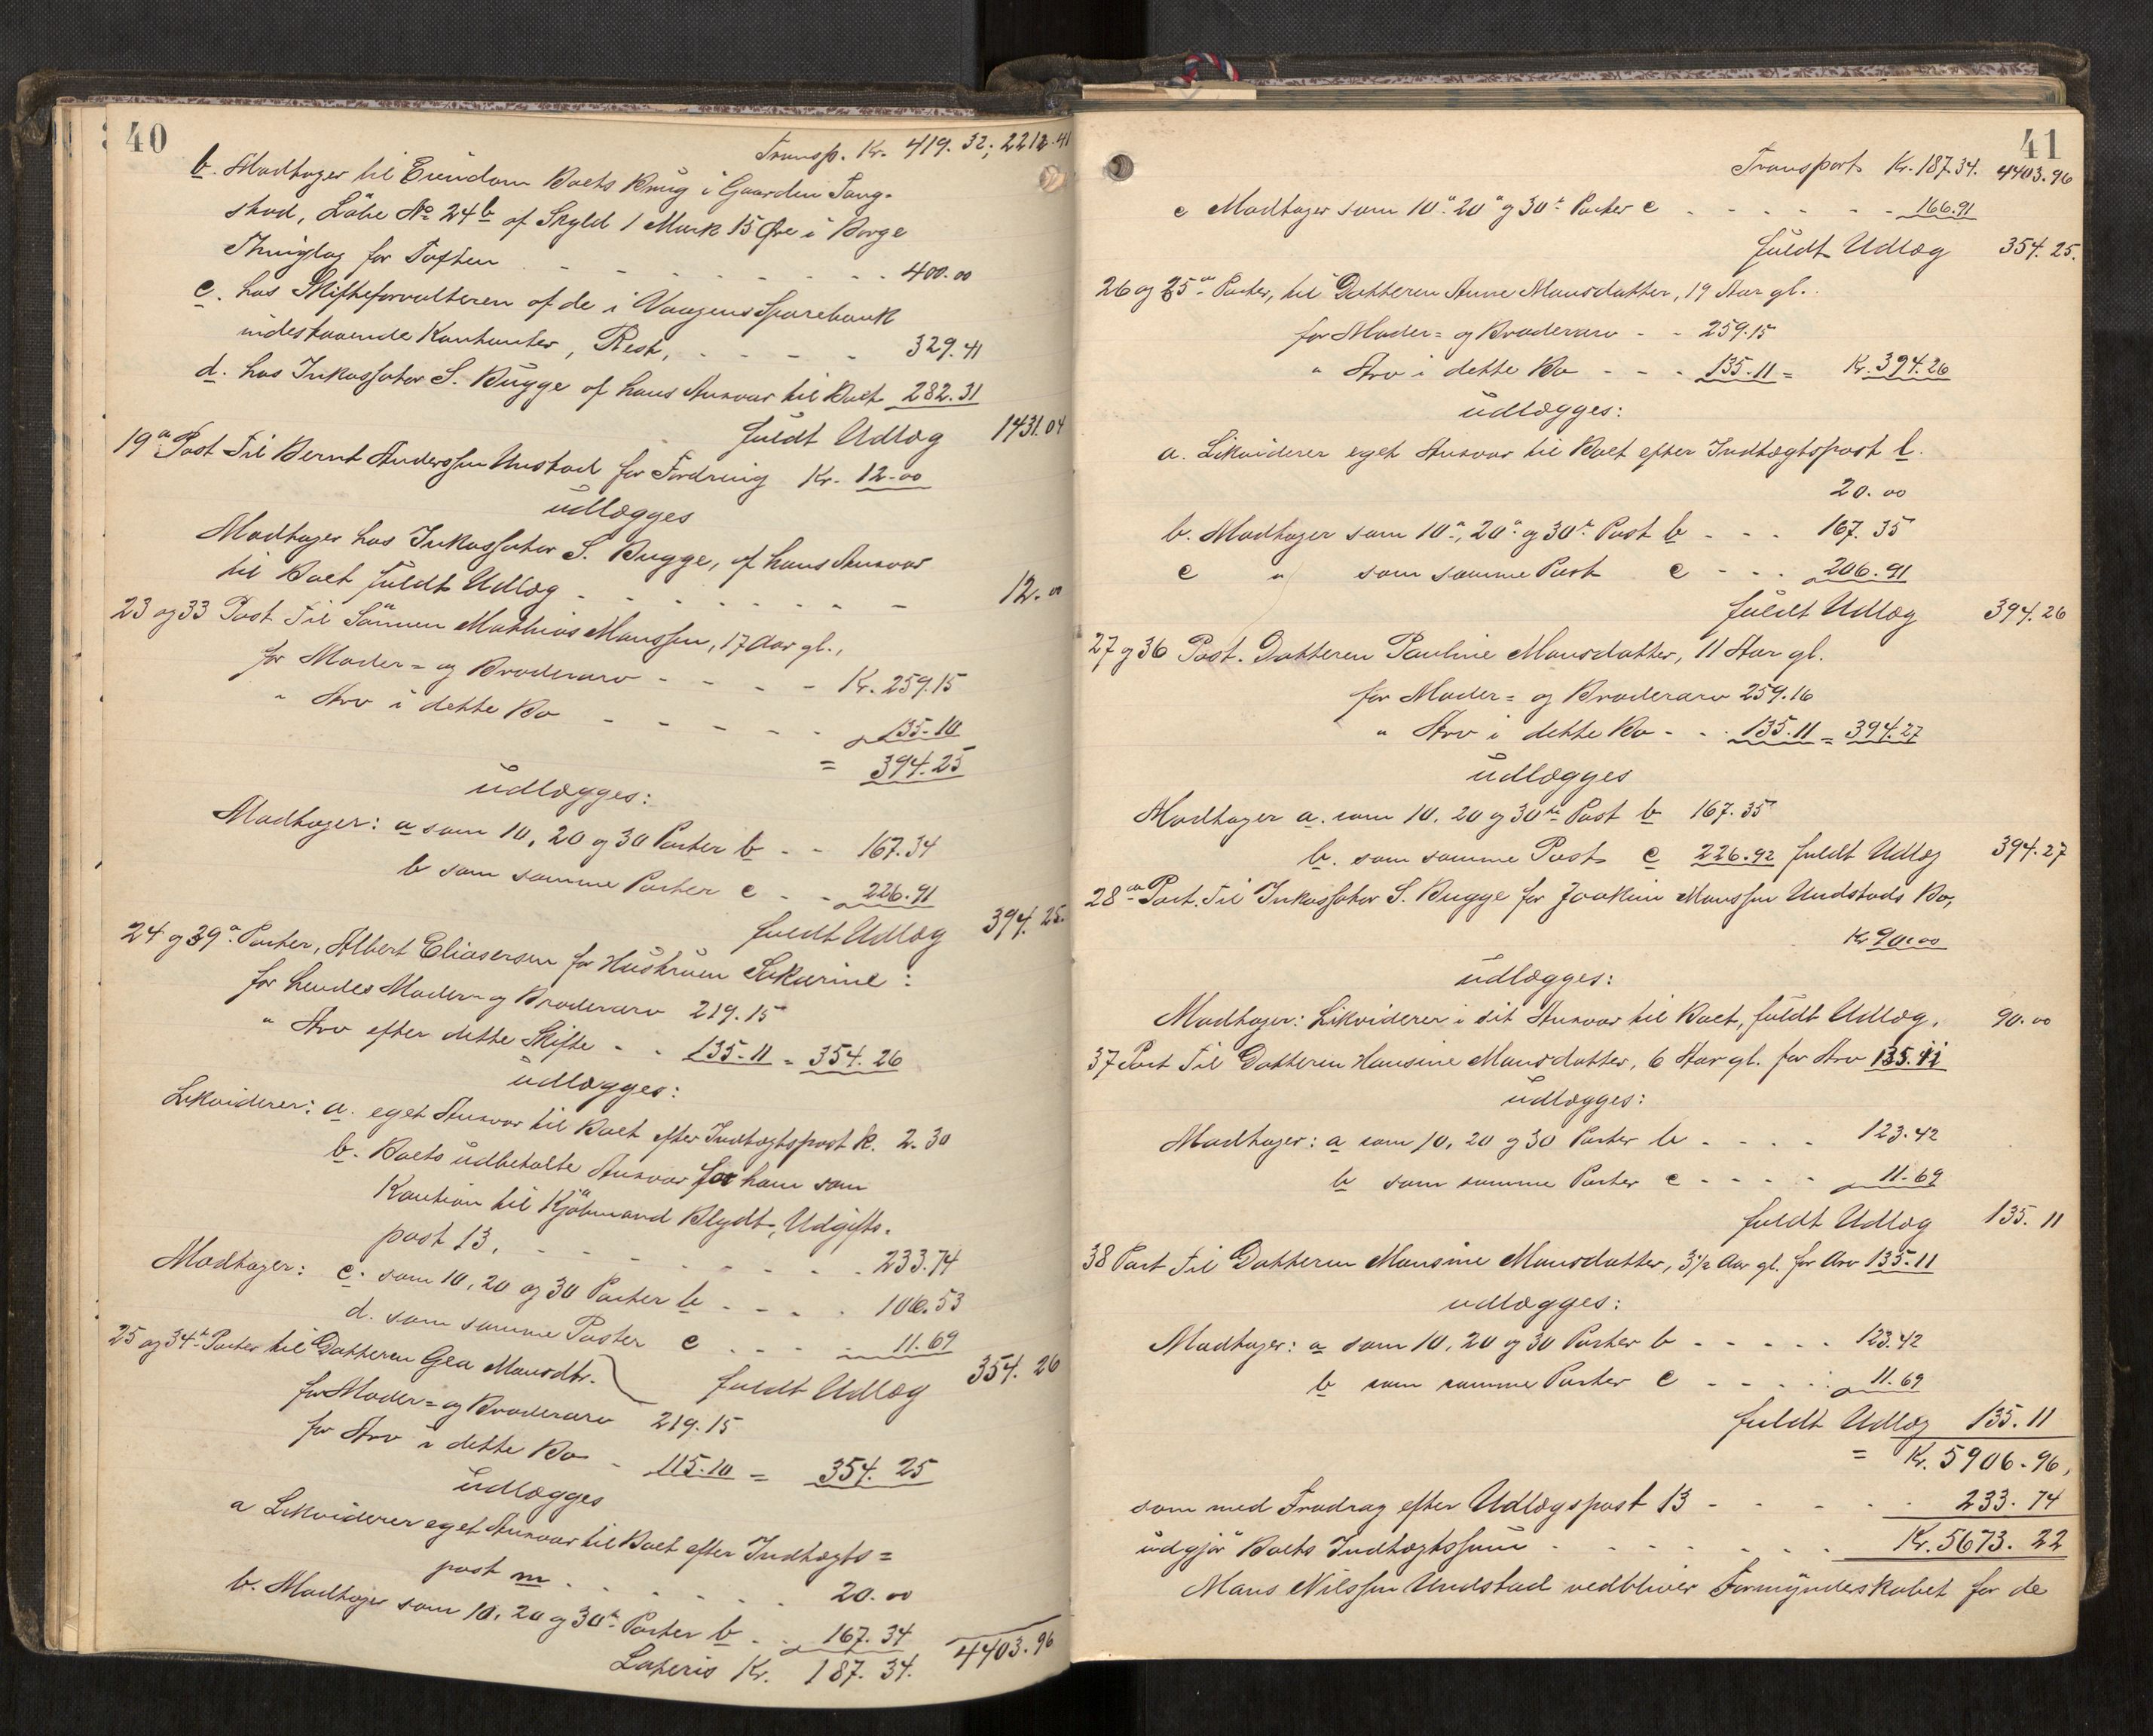 40
Transp. Kr. 419.32; 2212.41
b. Modtager til Eiendom Boets Brug i Gaarden Tang-
stad, Löbe No 24b af Skyld 1 Mark 15 Øre i Borge
Thinglag for Taxten - - - 400.00
c. hos Skifteforvalteren af de i Vaagens Sparebank
indestaaende Kontanter, Rest, - - - 329.41
d. hos Inkassator S. Bugge af hans Ansvar til Boet 282.31
fuldt Udlæg 1431.04
19de Post Til Bernt Anderssen Unstad for Fordring Kr. 12.00
udlægges
Modtager hos Inkassator S. Bugge, af hans Ansvar
til Boet fuldt Udlæg - - - 12.00
23 og 33 Post Til Sönnen Mathias Monssen, 17 Aar gl.,
for Moder= og Broderarv - - - Kr. 259.15
" Arv i dette Bo - - - 135.10
= 394.25
udlægges:
Modtager: a som 10, 20 og 30 Poster b - - 167.34
b som samme Poster c - - 226.91
fuldt Udlæg 394.25.
24 og 39te Poster, Albert Eliasersen for Hustruen Sakarine:
for hendes Moder- og Broderarv 219.15
" Arv efter dette Skifte - - 135.11 = 354.26
udlægges:
Likviderer: a. eget Ansvar til Boet efter Indtægtspost k. 2.30
b. Boets udbetalte Ansvar for ham som
Kaution til Kjöbmand Blydt, Udgifts-
post 13, - - - 233.74
Modtager: c. som 10, 20 og 30 Poster b - - - 106.53
d. som samme Poster c - - - 11.69
25 og 34te Poster til Datteren Gea Monsdtr. fuldt Udlæg 354.26
for Moder= og Broderarv 219.15
for Arv i dette Bo - 115.10 = 354.25
udlægges
a Likviderer eget Ansvar til Boet efter Indtægts=
post m - - - 20.00
b. Modtager som 10, 20 og 30te Poster b - - 167.34
Lateris Kr. 187.34. 4403.96
41
Transport Kr. 187.34. 4403.96
c Modtager som 10de 20de og 30te Poster c - - - 166.91
fuldt Udlæg 354.25.
26 og 35te Poster, til Datteren Anne Monsdatter, 19 Aar gl.
for Moder= og Broderarv - - 259.15
" Arv i dette Bo - - - 135.11 = Kr. 394.26
udlægges:
a. Likviderer eget Ansvar til Boet efter Indtægtspost l.
20.00
b. Modtager som 10de, 20de og 30te Post b - - - 167.35
c " som samme Post c - - - 206.91
fuldt Udlæg 394.26
27 og 36 Post. Datteren Pauline Monsdatter, 11 Aar gl.
for Moder= og Broderarv 259.16
" Arv i dette Bo - - - 135.11 = 394.27
udlægges
Modtager a. som 10, 20 og 30te Post b 167.35
b. som samme Post c 226.92 fuldt Udlæg 394.27
28de Post. Til Inkassator S. Bugge for Joakim Monssen Undstads Bo,
Kr 90.00
udlægges:
Modtager: Likviderer i sit Ansvar til Boet, fuldt Udlæg, 90.00
37 Post Til Datteren Hansine Monsdatter, 6 Aar gl. for Arv 135.11
udlægges:
Modtager: a som 10, 20 og 30 Poster b - - - - 123.42
b som samme Poster c - - - - 11.69
fuldt Udlæg 135.11
38 Post Til Datteren Monsine Monsdatter, 3½ Aar gl. for Arv 135.11
udlægges:
Modtager: a som 10, 20 og 30 Poster b - - - - - 123.42
b som samme Poster c - - - - 11.69
fuldt Udlæg 135.11
= Kr. 5906.96,
som med Fradrag efter Udlægspost 13 - - - - 233.74
udgjör Boets Indtægtssum - - - - Kr. 5673.22
Mons Nilssen Undstad vedbliver Formynderskabet for de